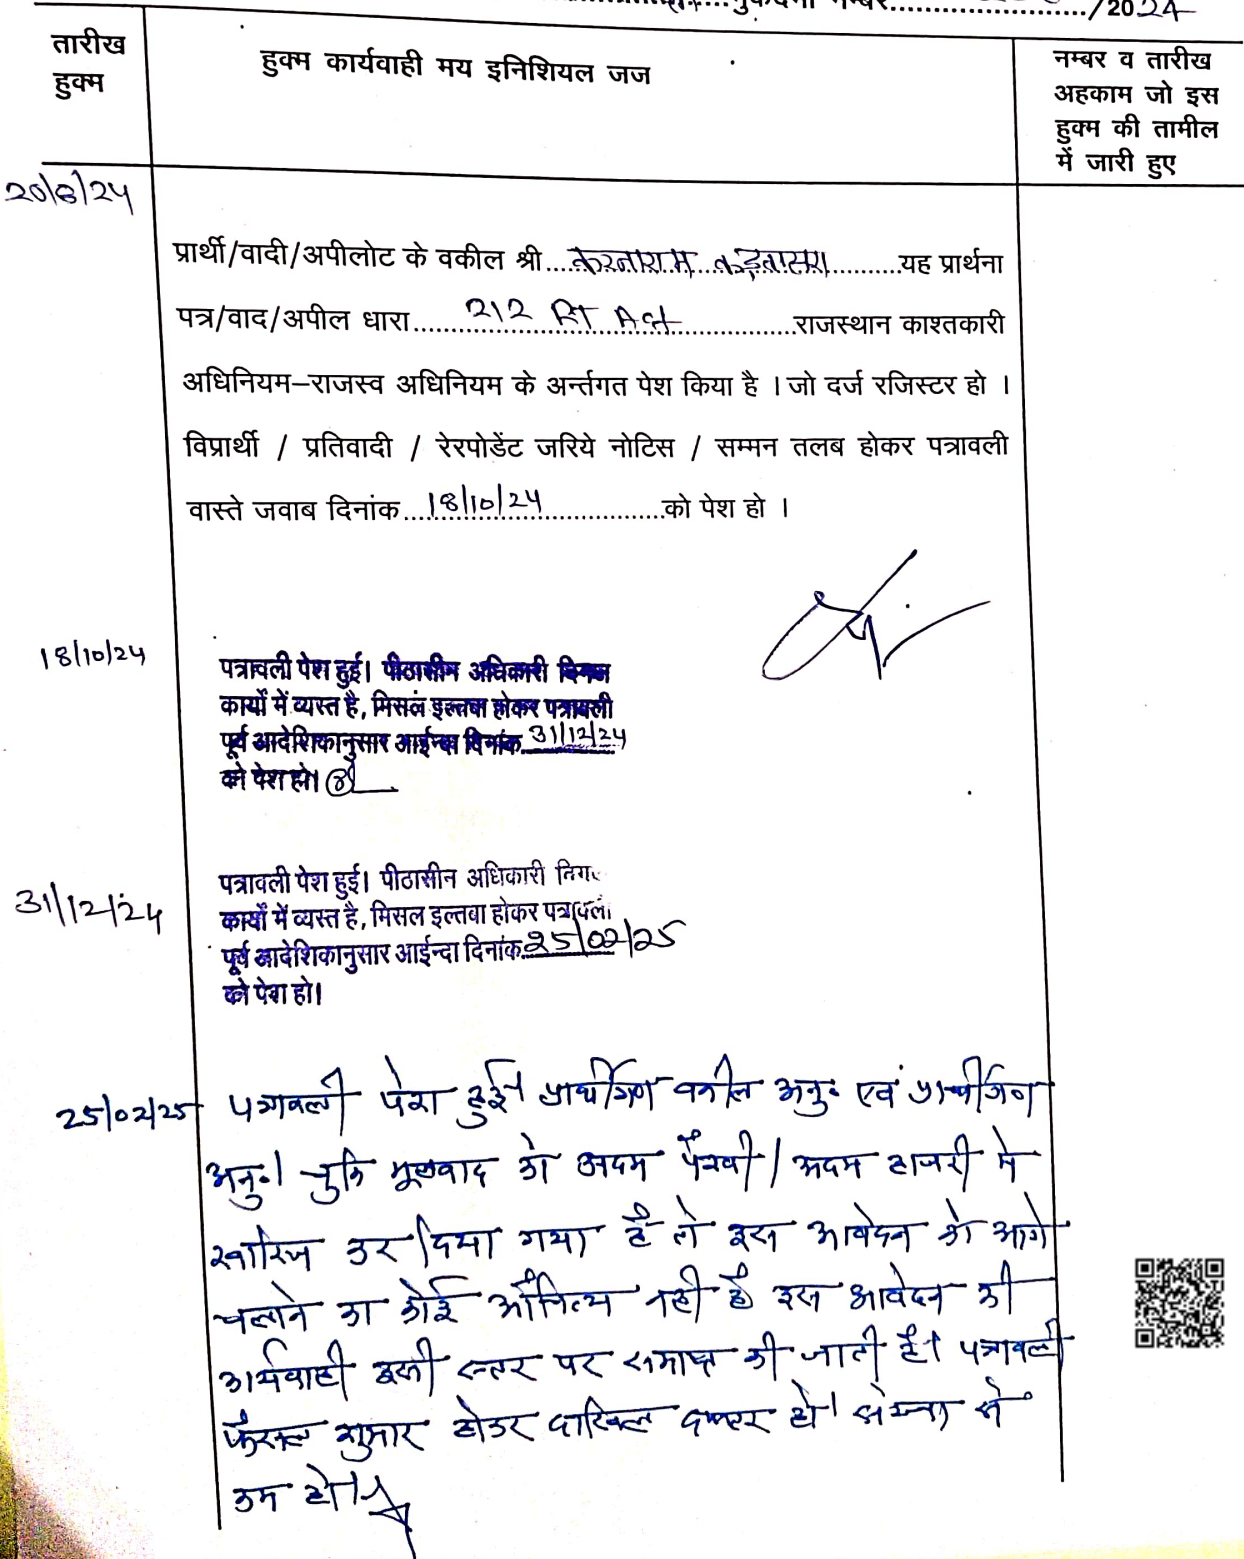 मुकदमा नम्बर............................/2024
तारीख
हुक्म
हुक्म कार्यवाही मय इनिशियल जज
नम्बर व तारीख
अहकाम जो इस
हुक्म की तामील
में जारी हुए
20/8/24
प्रार्थी/वादी/अपीलोट के वकील श्री....करनाराम कड़वासरा..........यह प्रार्थना
पत्र/वाद/अपील धारा......212 RT Act..............राजस्थान काश्तकारी
अधिनियम–राजस्व अधिनियम के अर्न्तगत पेश किया है । जो दर्ज रजिस्टर हो ।
विप्रार्थी / प्रतिवादी / रेरपोडेंट जरिये नोटिस / सम्मन तलब होकर पत्रावली
वास्ते जवाब दिनांक...18/10/24..............को पेश हो ।
18/10/24
पत्रावली पेश हुई। पीठासीन अधिकारी
कार्यो में व्यस्त है, मिसल इल्तवा होकर पत्रावली
पूर्व आदेशिकानुसार आईन्दा दिनांक 31/12/24
को पेश हो।
31/12/24
पत्रावली पेश हुई। पीठासीन अधिकारी
कार्यो में व्यस्त है, मिसल इल्तबा होकर पत्रावली
पूर्व आदेशिकानुसार आईन्दा दिनांक 25/02/25
को पेश हो।
25/02/25 पत्रावली पेश हुई। प्रार्थीगण वकील अनु॰ एवं प्रार्थीगण
अनु॰। चुकि मूलवाद को अदम पैरवी / अदम हाजरी मे
खारिज कर दिया गया है तो इस आवेदन को आगे
चलाने का कोई औचित्य नही है इस आवेदन की
कार्यवाही इसी स्तर पर समाप्त की जाती है। पत्रावली
फैसल शुमार होकर दाखिल दफ्तर हो। संख्या से
कम हो।